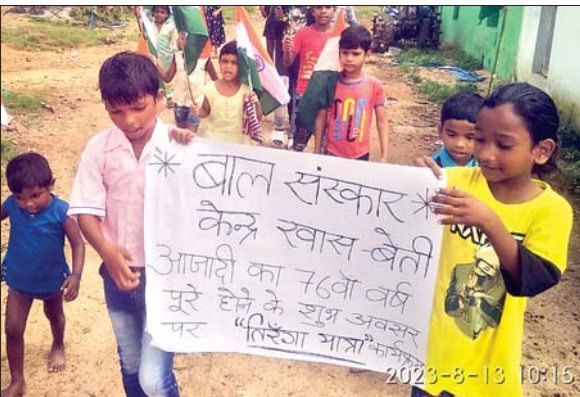 * बाल संस्कार *
केन्द्र खास-बेती
आजादी का 76वॉ वर्ष
पूरे होने के शुभ अवसर
पर "तिरंगा यात्रा" कार्यक्रम
2023-8-13 10:15